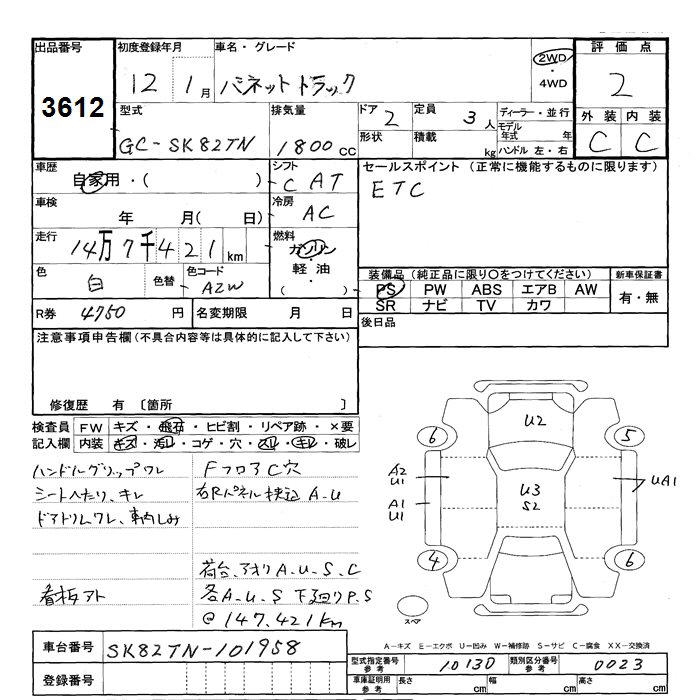 出品番号
3612
初度登録年月
12 1月
車名・グレード
バネットトラック
2WD
・
4WD
評価点
2
外装 内装
C C
型式
GC-SK82TN
排気量
1800cc
ドア
2
定員
3人
形状
積載
kg
ディーラー・並行
モデル年式 年
ハンドル 左・右
車歴
自家用・( )
シフト
C AT
セールスポイント (正常に機能するものに限ります)
ETC
車検
年 月( 日)
冷房
AC
走行
14万7千421km
燃料
ガソリン
・
軽油
( )
色
白
色替
色コード
AZW
装備品 (純正品に限り○をつけてください)
PS PW ABS エアB AW
SR ナビ TV カワ
新車保証書
有・無
R券 4750円
名変期限 月 日
後日品
注意事項申告欄 (不具合内容等は具体的に記入して下さい)
修復歴 有 〔箇所 〕
検査員記入欄
FW キズ・飛石・ヒビ割・リペア跡・×要
内装 キズ・汚レ・コゲ・穴・スレ・キレ・破レ
ハンドルグリップワレ
シートヘたり、キレ
ドアトリムワレ、車内しみ
看板アト
Fフロア C穴
右Rパネル押込 A-U
荷台、アオリ A-U-S-C
各A-U-S 下回りP.S
@147.421km
U2
6 5
A2
U1
A1
U1
U3
S2
UA1
4 6
スペア
A－キズ E－エクボ U－凹み W－補修跡 S－サビ C－腐食 XX－交換済
車台番号 SK82TN-101958
登録番号
型式指定番号 参考 1013D
類別区分番号 参考 0023
車庫証明用 参考
長さ cm
幅 cm
高さ cm